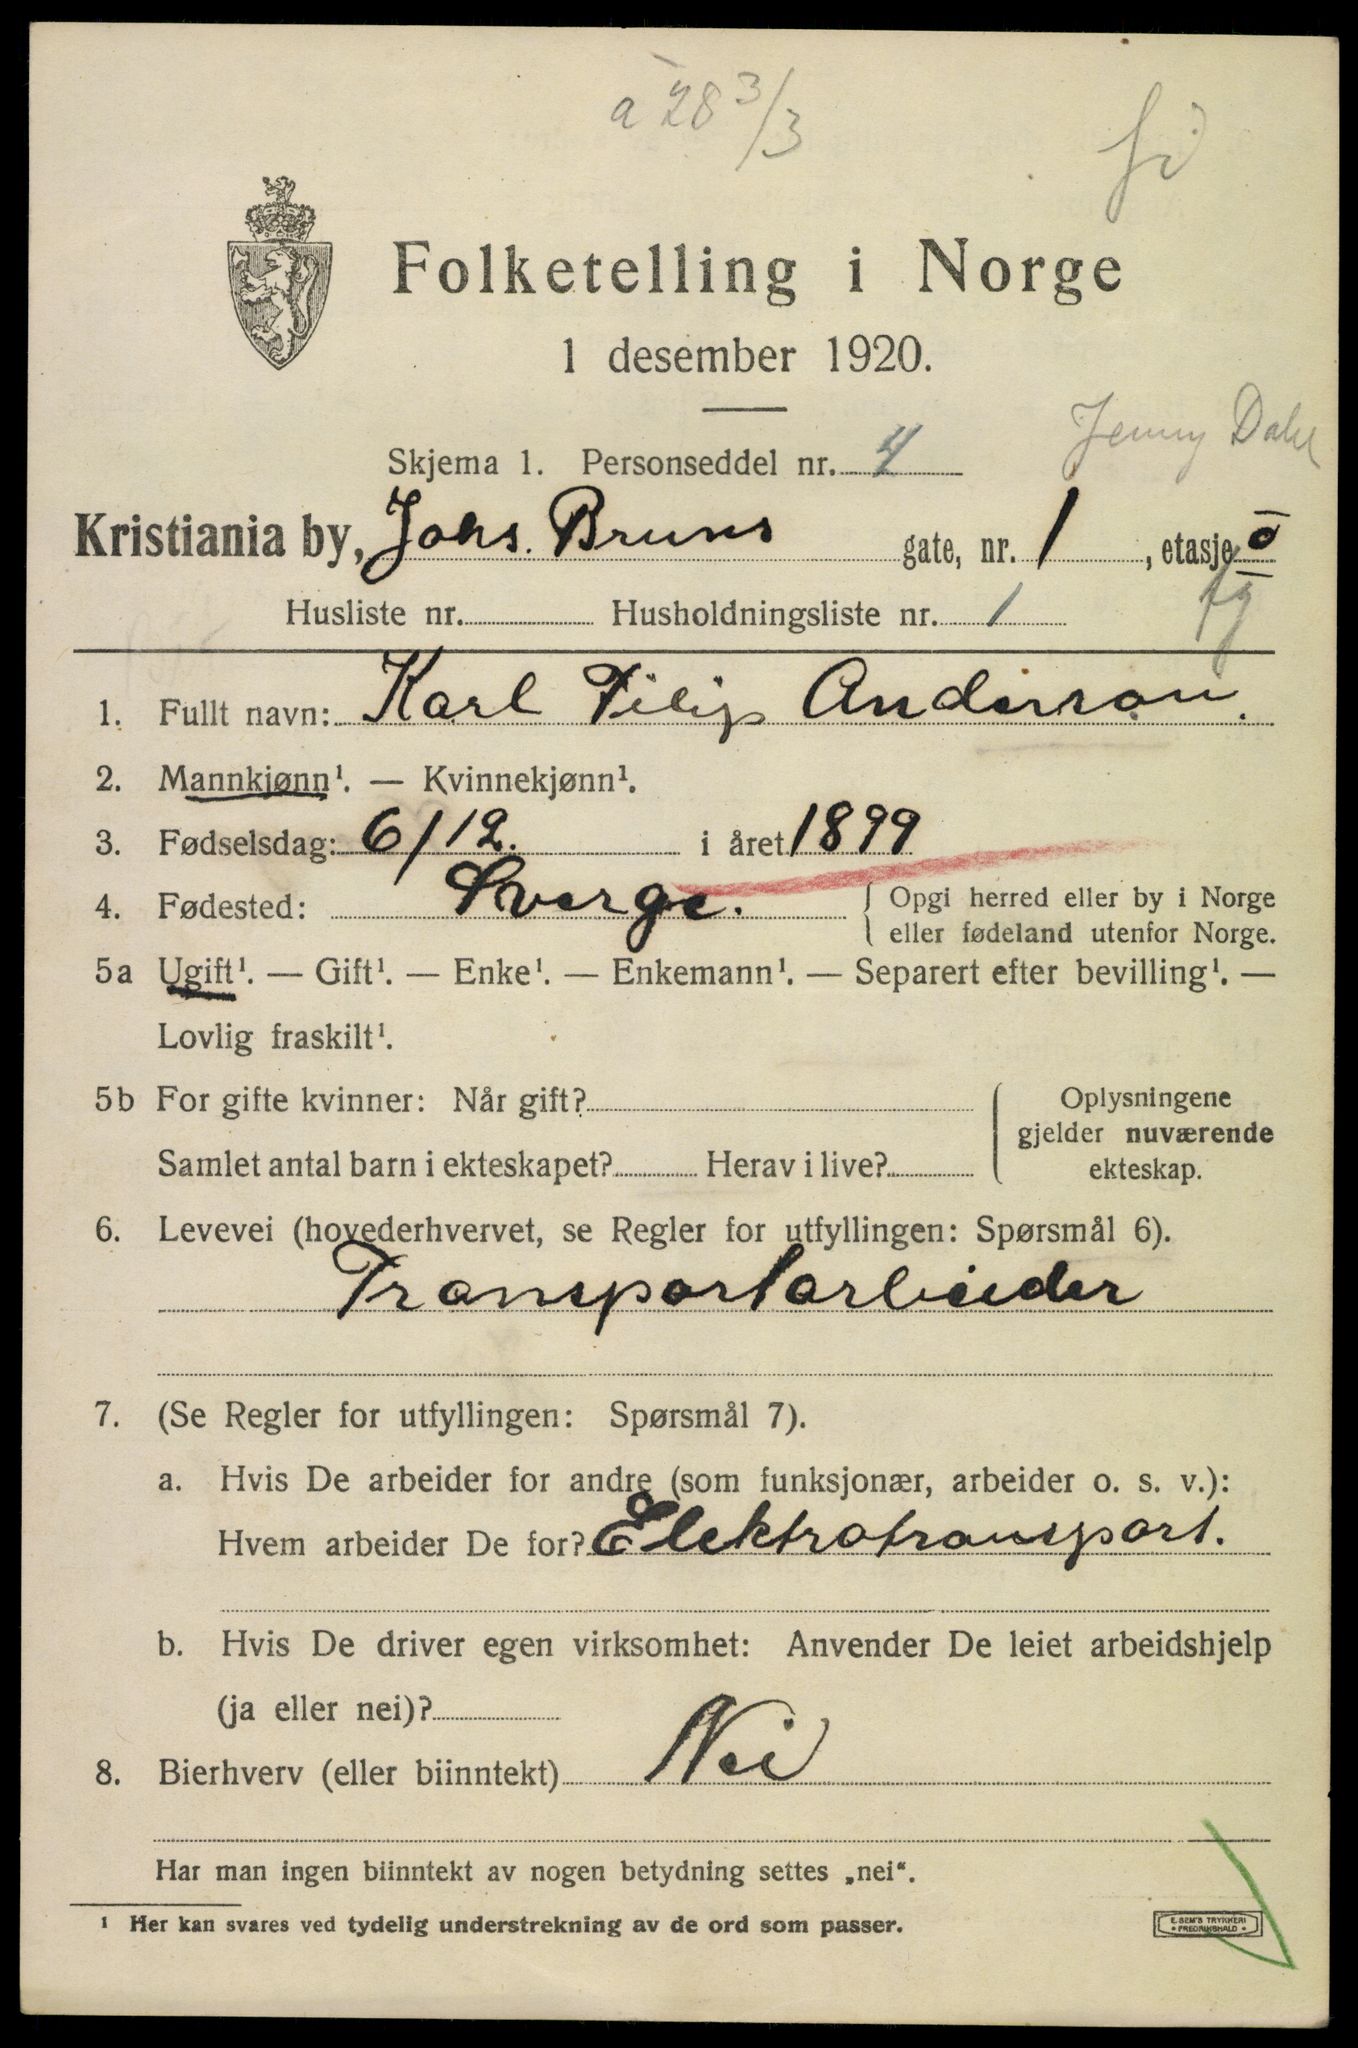 a 28 3/3
Folketelling i Norge
1 desember 1920.
Jenny Dahl
Skjema 1. Personseddel nr. 4
Kristiania by, Johs. Bruns gate, nr. 1, etasje
Husliste nr. Husholdningsliste nr. 1
1. Fullt navn: Karl Filip Anderson.
2. Mannkjønn¹. — Kvinnekjønn¹.
3. Fødselsdag: 6/12. i året 1899
4. Fødested: Sverge. { Opgi herred eller by i Norge
eller fødeland utenfor Norge.
5a Ugift¹. — Gift¹. — Enke¹. — Enkemann¹. — Separert efter bevilling¹. —
Lovlig fraskilt¹.
5b For gifte kvinner: Når gift? Oplysningene
gjelder nuværende
Samlet antal barn i ekteskapet? Herav i live? ekteskap.
6. Levevei (hovederhvervet, se Regler for utfyllingen: Spørsmål 6).
Transportarbeider
7. (Se Regler for utfyllingen: Spørsmål 7).
a. Hvis De arbeider for andre (som funksjonær, arbeider o. s. v.):
Hvem arbeider De for? Elektrotransport.
b. Hvis De driver egen virksomhet: Anvender De leiet arbeidshjelp
(ja eller nei)?
8. Bierhverv (eller biinntekt) Nei
Har man ingen biinntekt av nogen betydning settes „nei“.
¹ Her kan svares ved tydelig understrekning av de ord som passer.
E. SEM'S TRYKKERI
FREDRIKSHALD